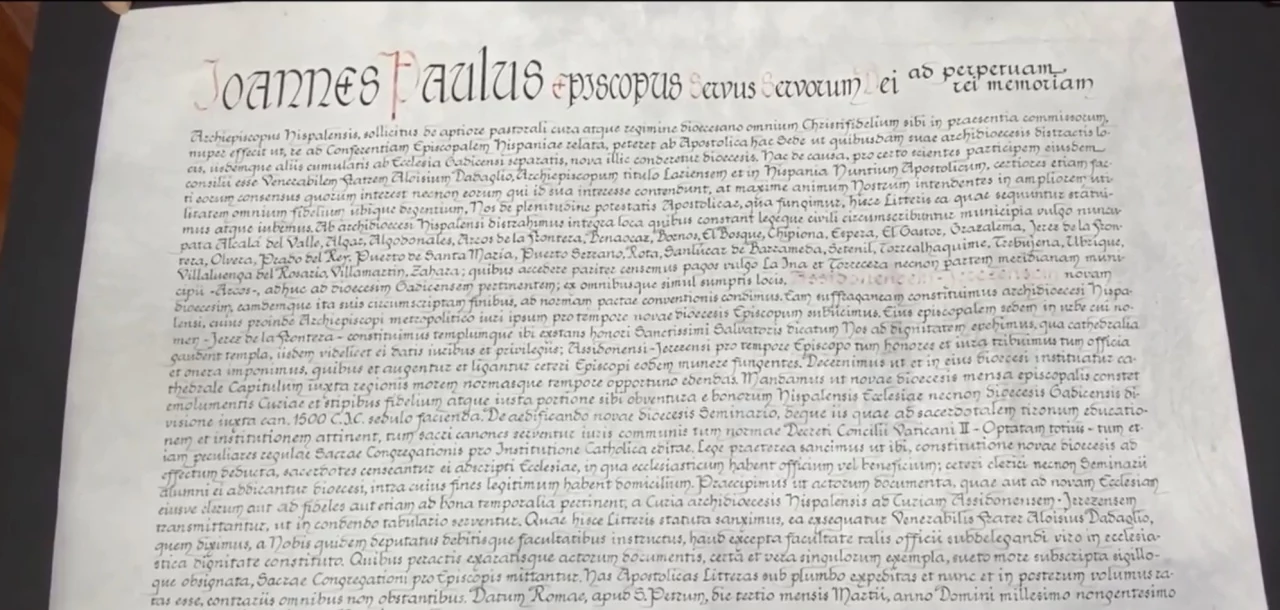 Ioannes Paulus Episcopus Servus Servorum Dei ad perpetuam
rei memoriam
Archiepiscopus Hispalensis, sollicitus de aptiore pastorali cura atque regimine dioecesano omnium Christifidelium sibi in praesentia commissorum,
nuper effecit ut, re ad Conferentiam Episcopalem Hispaniae relata, peteret ab Apostolica hac Sede ut quibusdam suae archidioecesis distractis lo-
cis, iisdemque aliis cumulatis ab Ecclesia Gadicensi separatis, nova illic conderetur dioecesis. Hac de causa, pro certo scientes participem eiusdem
consilii esse Venerabilem Fratrem Aloisium Dadaglio, Archiepiscopum titulo Lariensem et in Hispania Nuntium Apostolicum, certiores etiam fac-
ti eorum consensus quorum interest necnon eorum qui id sua interesse contendunt, at maxime animum Nostrum intendentes in ampliorem uti-
litatem omnium fidelium ubique degentium, Nos de plenitudine potestatis Apostolicae, qua fungimur, hisce Litteris ea quae sequuntur statui-
mus atque iubemus. Ab archidioecesi Hispalensi distrahimus integra loca quibus constant legeque civili circumscribuntur municipia vulgo nuncu-
pata Alcalá del Valle, Algar, Algodonales, Arcos de la Frontera, Benaocaz, Bornos, El Bosque, Chipiona, Espera, El Gastor, Grazalema, Jerez de la Fron-
tera, Olvera, Prado del Rey, Puerto de Santa María, Puerto Serrano, Rota, Sanlúcar de Barrameda, Setenil, Torrealhaquime, Trebujena, Ubrique,
Villaluenga del Rosario, Villamartin, Zahara; quibus accedere pariter censemus pagos vulgo La Ina et Torrecera necnon partem meridianam muni-
cipii -Arcos-, adhuc ad dioecesim Gadicensem pertinentem; ex omnibusque simul sumptis locis, Assidonensem-Jerezensem novam
dioecesim, eamdemque ita suis circumscriptam finibus, ad normam pactae conventionis condimus. Eam suffraganeam constituimus archidioecesi Hispa-
lensi, cuius proinde Archiepiscopi metropolitico iuri ipsum pro tempore novae dioecesis Episcopum subiicimus. Eius episcopalem sedem in urbe cui no-
men -Jerez de la Frontera- constituimus templumque ibi exstans honori Sanctissimi Salvatoris dicatum Nos ad dignitatem evehimus, qua cathedralia
gaudent templa, iisdem videlicet ei datis iuribus et privilegiis; Assidonensi-Jerezensi pro tempore Episcopo tum honores et iura tribuimus tum officia
et onera imponimus, quibus et augentur et ligantur ceteri Episcopi eodem munere fungentes. Decernimus ut et in eius dioecesi instituatur ca-
thedrale Capitulum iuxta regionis morem normasque tempore opportuno edendas. Mandamus ut novae dioecesis mensa episcopalis constet
emolumentis Curiae et stipibus fidelium atque iusta portione sibi obventura e bonorum Hispalensis Ecclesiae necnon dioecesis Gadicensis di-
visione iuxta can. 1500 C.I.C. sedulo facienda. De aedificando novae dioecesis Seminario, deque iis quae ad sacerdotalem tironum educatio-
nem et institutionem attinent, tum sacri canones serventur iuris communis tum normae Decreti Concilii Vaticani II -Optatam totius- tum et-
iam peculiares regulae Sacrae Congregationis pro Institutione Catholica editae. Lege praeterea sancimus ut ibi, constitutione novae dioecesis ad
effectum deducta, sacerdotes censeantur ei adscripti Ecclesiae, in qua ecclesiasticum habent officium vel beneficium; ceteri clerici necnon Seminarii
alumni ei addicantur dioecesi, intra cuius fines legitimum habent domicilium. Praecipimus ut actorum documenta, quae aut ad novam Ecclesiam
eiusve clerum aut ad fideles aut etiam ad bona temporalia pertinent, a Curia archidioecesis Hispalensis ad Curiam Assidonensem-Jerezensem
transmittantur, ut in condendo tabulario serventur. Quae hisce Litteris statuta sanximus, ea exsequatur Venerabilis Frater Aloisius Dadaglio,
quem diximus, a Nobis quidem deputatus debitisque facultatibus instructus, haud excepta facultate talis officii subdelegandi viro in ecclesia-
stica dignitate constituto. Quibus peractis exaratisque actorum documentis, certa et vera singulorum exempla, sueto more subscripta sigillo-
que obsignata, Sacrae Congregationi pro Episcopis mittantur. Has Apostolicas Litteras sub plumbo expeditas et nunc et in posterum volumus ra-
tas esse, contrariis omnibus non obstantibus. Datum Romae, apud S. Petrum, die tertio mensis Martii, anno Domini millesimo nongentesimo